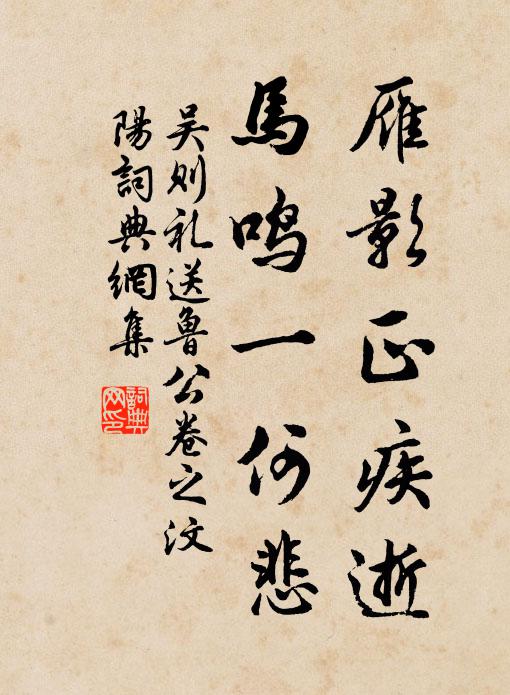 雁影正疾逝
馬鳴一何悲
吴则礼送魯公卷之汶
陽詞典網集
詞典网印